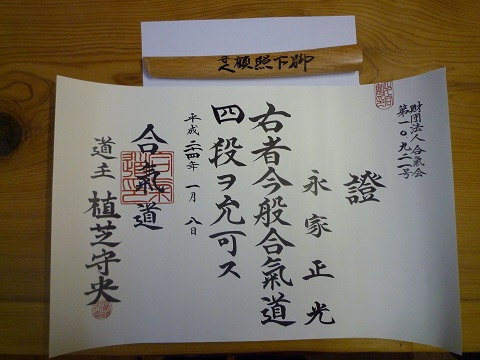 脚下照顧
財団法人 合氣会
第一〇九二一号
證
永家正光
右者今般合氣道
四段ヲ允可ス
平成二四年一月八日
合氣道
道主 植芝守央